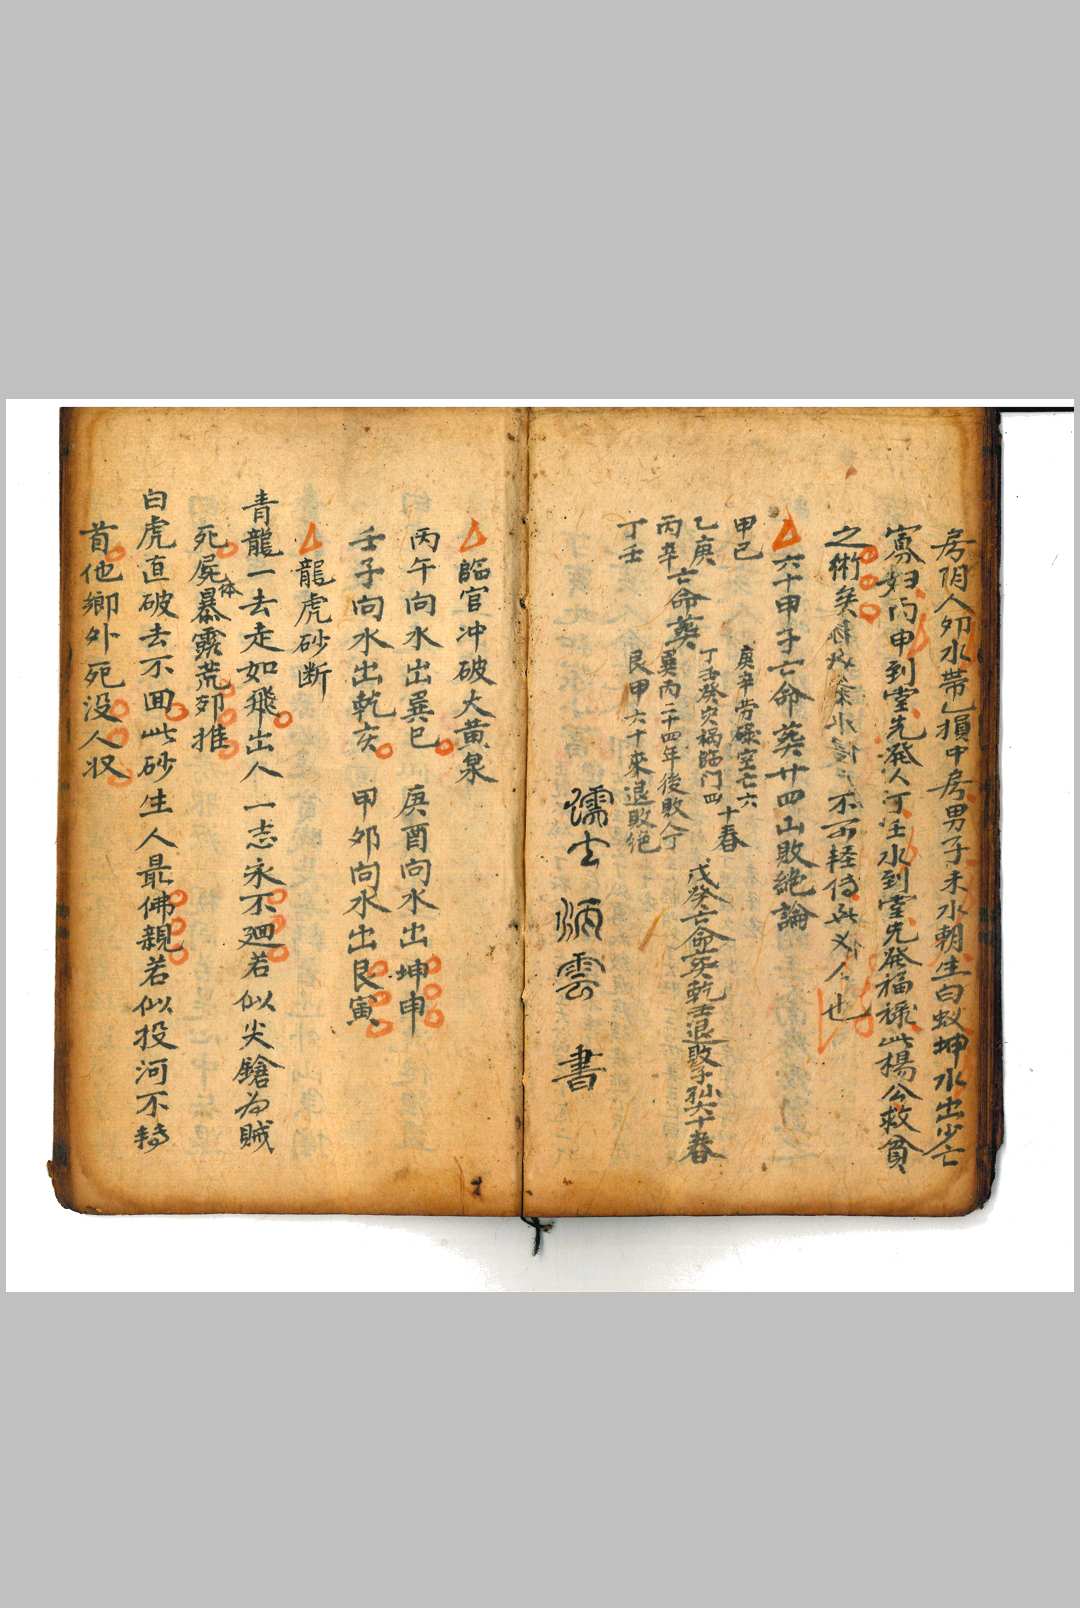 房阴人卯水帶乙損中房男子未水朝生白蚁坤水出少亡
寡妇丙申到堂先發人丁壬水到堂先發福祿此楊公救貧
之術矣 不可輕傳 人也
六十甲子亡命葬廿四山敗絕論
甲已
庚辛劳碌空亡六
乙庚
丁壬癸灾禍臨门四
十春
丙辛
亡命葬
巽丙二十四年後敗人丁
丁壬
艮甲六十來退敗絕
戊癸亡命葵乾壬退敗子孙六十春
炳雲 書
臨官冲破大黃泉
丙午向水出巽巳 庚酉向水出坤申
壬子向水出乾亥 甲夘向水出艮寅
龍虎砂断
青龍一去走如飛出人一志永不廻若似尖鎗為賊
死屍体暴露荒郊推
白虎直破去不回此砂生人最佛親若似投河不轉
首他鄉外死没人収